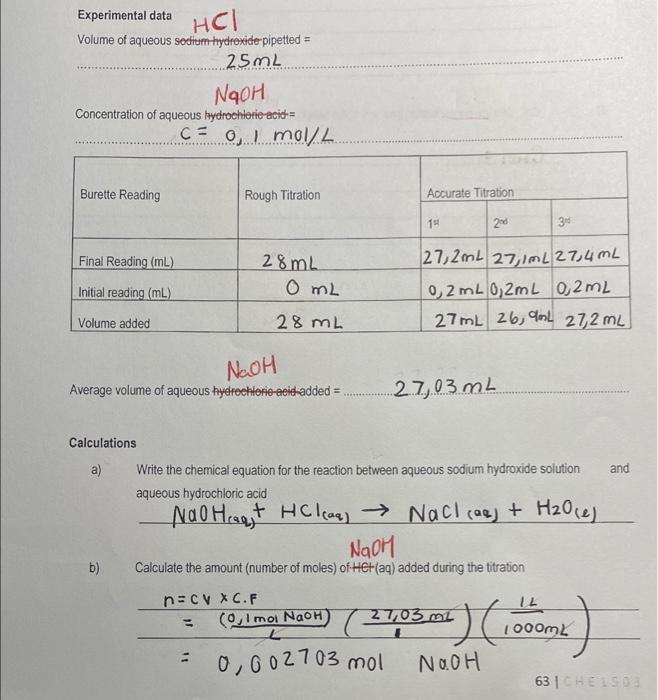 Experimental data
HCl
Volume of aqueous sodium hydroxide pipetted =
25mL
NaOH
Concentration of aqueous hydrochloric acid =
C = 0,1 mol/L
Burette Reading Rough Titration Accurate Titration
1st 2nd 3rd
Final Reading (mL) 28mL 27,2mL 27,1mL 27,4mL
Initial reading (mL) 0 mL 0,2mL 0,2mL 0,2mL
Volume added 28 mL 27mL 26,9mL 27,2mL
NaOH
Average volume of aqueous hydrochloric acid added = 27,03mL
Calculations
a) Write the chemical equation for the reaction between aqueous sodium hydroxide solution and
aqueous hydrochloric acid
NaOH(aq) + HCl(aq) → NaCl(aq) + H2O(l)
NaOH
b) Calculate the amount (number of moles) of HCl (aq) added during the titration
n = CV x C.F
= (0,1mol NaOH)/L (27,03 mL/1) (1L/1000mL)
= 0,002703 mol NaOH
63 | CHE1503